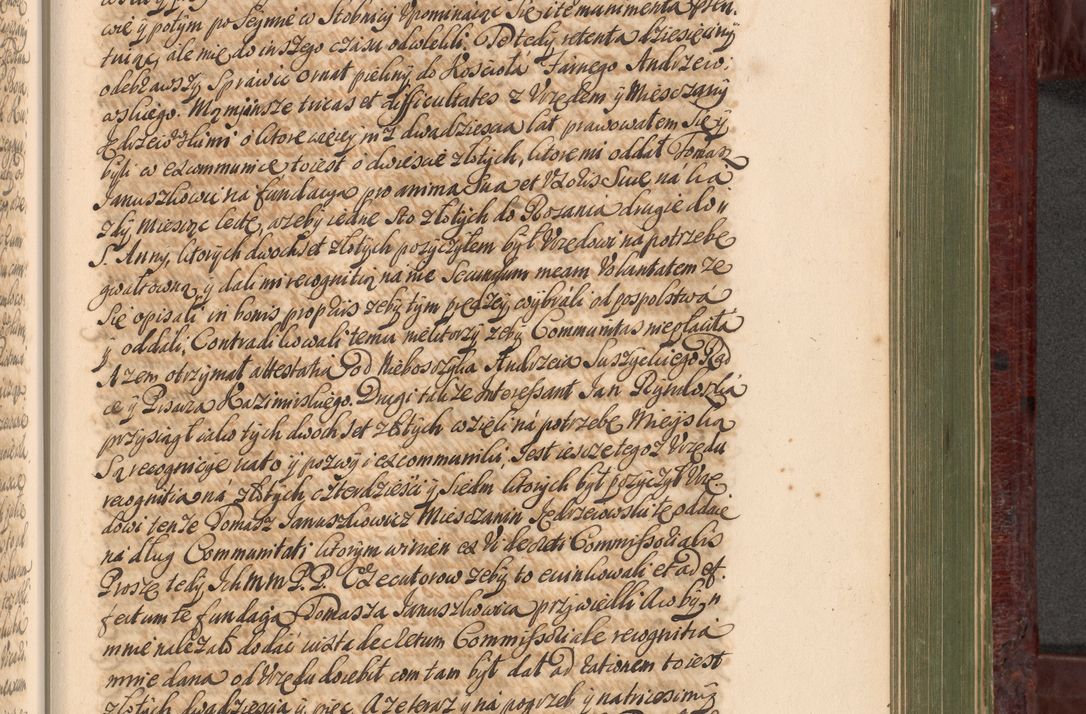 wie ÿ potÿm po Seÿmie w Stobnicÿ Vpominaiąc Się ite munimenta
ale mię do inszego czasu odwlekli. Te tedÿ retenta dziesięcinÿ
odebrawszÿ Sprawić ornat pięknÿ do Kościoła Farnego Andrzeio:
wskiego. Mam ieszcze tricas et difficultates z Vrzędem ÿ Miesczanÿ
Jędrzeiowskimi o ktore więceÿ niz dwadziescia lat prawowałem Się ÿ
bÿli w excommunice, to iest o dwiescie złotÿch, ktore mi oddał Tomasz
Januszkowic na fundacÿą pro anima Sua et Vxoris Suæ na ka
zdÿ Miesiąc lectę, azebÿ iedne Sto złotÿch do Rozanca drugie do
S. Annÿ, ktorÿch dwochset złotÿch pozÿczÿłem bÿł Vrzędowi na potrzebę
gwałtowną, ÿ dali mi recognitią na nie Secundum meam Voluntatem ze
Się opisali in bonis proprÿs zebÿ tÿm prędzeÿ wÿbrali od pospolstwa
ÿ oddali. Contradikowali temu niektorzÿ zebÿ Communitas niepłaciła
Azem otrzÿmał attestatią od Nieboszczÿka Andrzeia Suszÿckiego Rad
ce ÿ Pisarza Kazimirskiego. Drugi takze Interessant Jan
przÿsiągł iako tÿch dwochset złotÿch wzięli ná potrzebę Mieÿską
Są recognicÿe na to ÿ pozwÿ i excommuniki. Jest ieszcze tegoz Vrzędu
recognitia ná złotÿch czterdziesci ÿ Siedm ktorÿch bÿł pozÿczÿł Vrzę
dowi tenże Tomasz Januszkowicz Miesczanin Jędrzeiowski te oddać
na dług Communitati ktorÿm winien ex Vi decreti Commissorialis
Proszę tedÿ Ich MM P.P. Executorow zebÿ to ewinkowali et ad ef.
fectum te fundacią Tomasza Januszkowica przÿwiedli A co bÿ
mnie nalezało dodać iuxta decretum Commissoriale recognitia
mnie dana od Vrzędu dociebÿ com tam bÿł dał ad rationem to iest
złotÿch dwadziescia ÿ pięc. A ze teraz ÿ ná pogrzeb ÿ na tricesimÿ